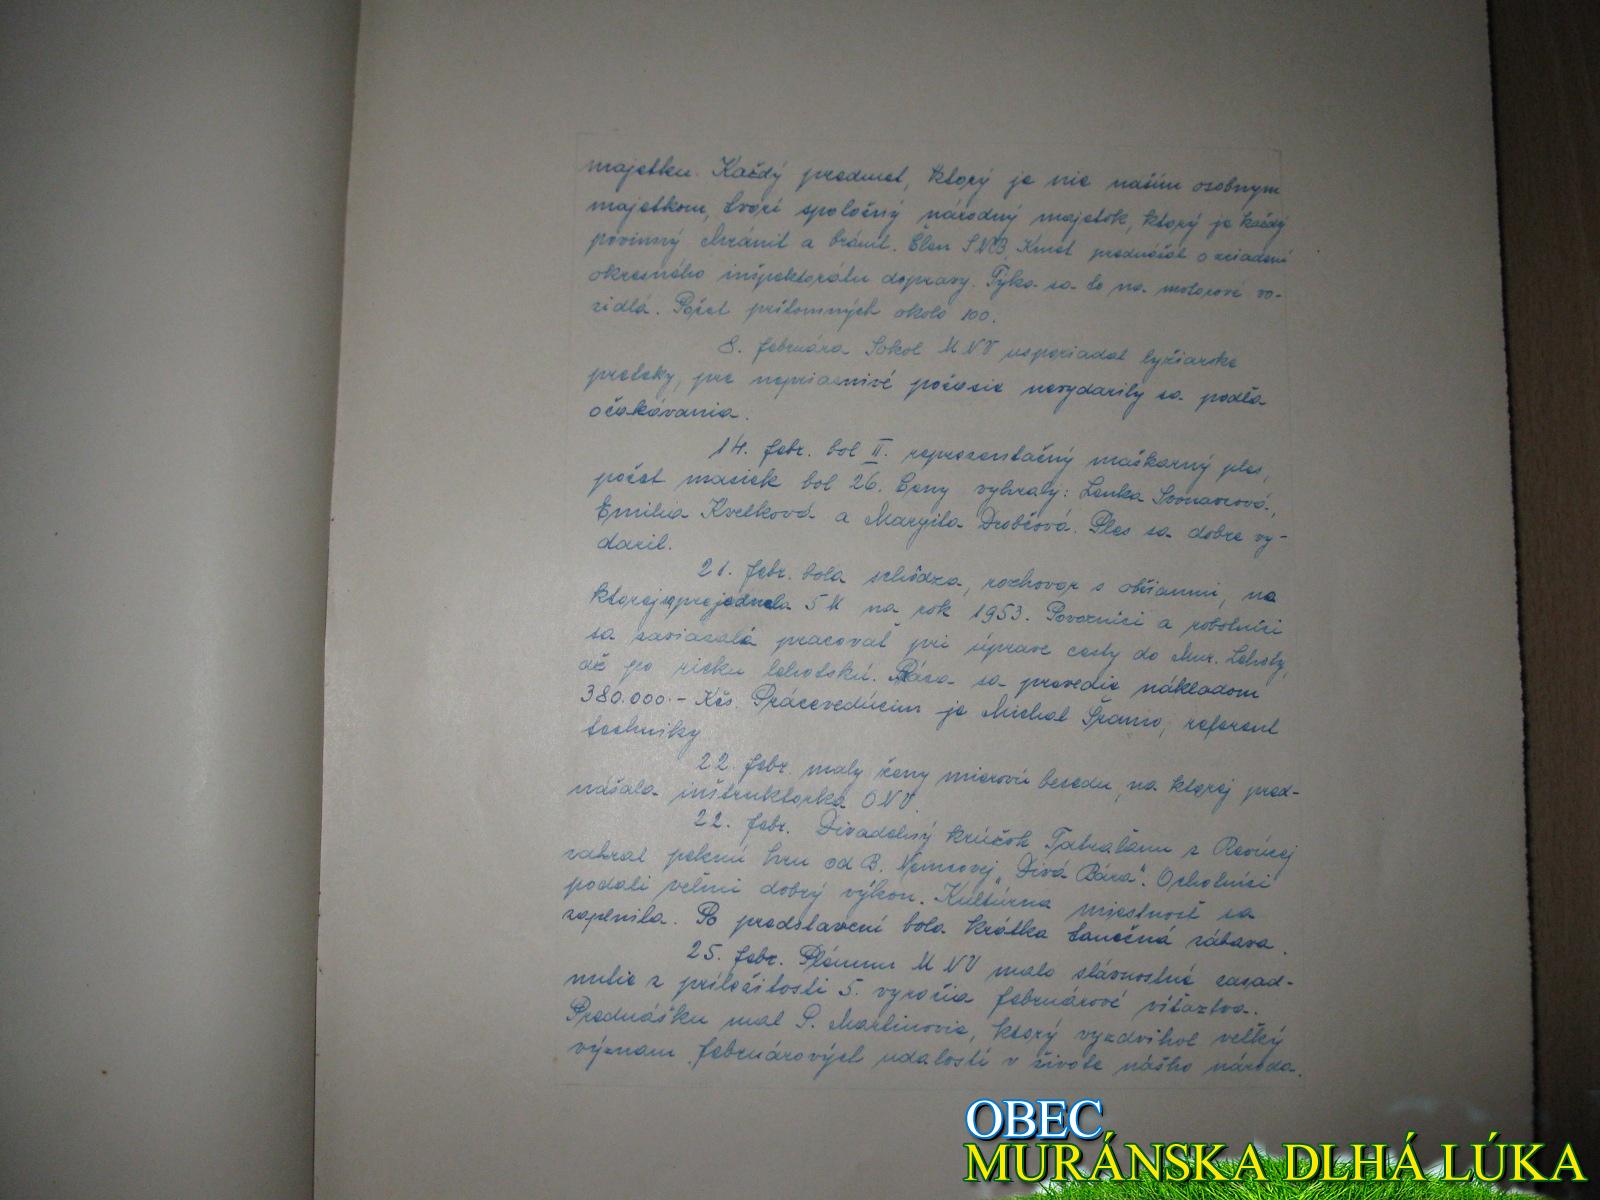 majetku. Každý predmet, ktorý je nie našim osobným
majetkom, tvorí spoločný národný majetok, ktorý je každý
povinný chrániť a brániť. Člen SNB, Kmeť prednášal o zriadení
okresného inšpektorátu dopravy. Týka sa to na motorové vo-
zidlá. Počet prítomných okolo 100.
8. februára Sokol MNV usporiadal lyžiarske
preteky, pre nepriaznivé počasie nevydarily sa podľa
očakávania.
14. febr. bol II. reprezentačný maškarný ples,
počet masiek bol 26. Ceny vyhraly: Lenka
Emilia Kvetková a Margita Drobčová. Ples sa dobre vy-
daril.
21. febr. bola schôdza, rozhovor s občanmi, na
ktorej sa prejednala 5M na rok 1953. Povozníci a robotníci
sa zaviazali pracovať pri úprave cesty do Mur. Lehoty,
až po rieku lehotskú. sa prevedie nákladom
380.000.- Kčs. Prácevedúcim je Michal Šramo, referent
techniky
22. febr. maly ženy mierovú besedu, na ktorej pred-
nášala inštruktorka ONV.
22. febr. Divadelný krúžok Tatralánu z Revúcej
zahral peknú hru od B. Nemcovej „Divá Bára". Ochotníci
podali veľmi dobrý výkon. Kultúrna miestnosť sa
zaplnila. Po predstavení bola krátka tanečná zábava.
25. febr. Plénum MNV malo slávnostné zasad-
nutie z príležitosti 5. výročia februárové víťaztva.
Prednášku mal P. Martinovic, ktorý vyzdvihol veľký
význam februárových udalostí v živote nášho národa.
OBEC
MURÁNSKA DLHÁ LÚKA